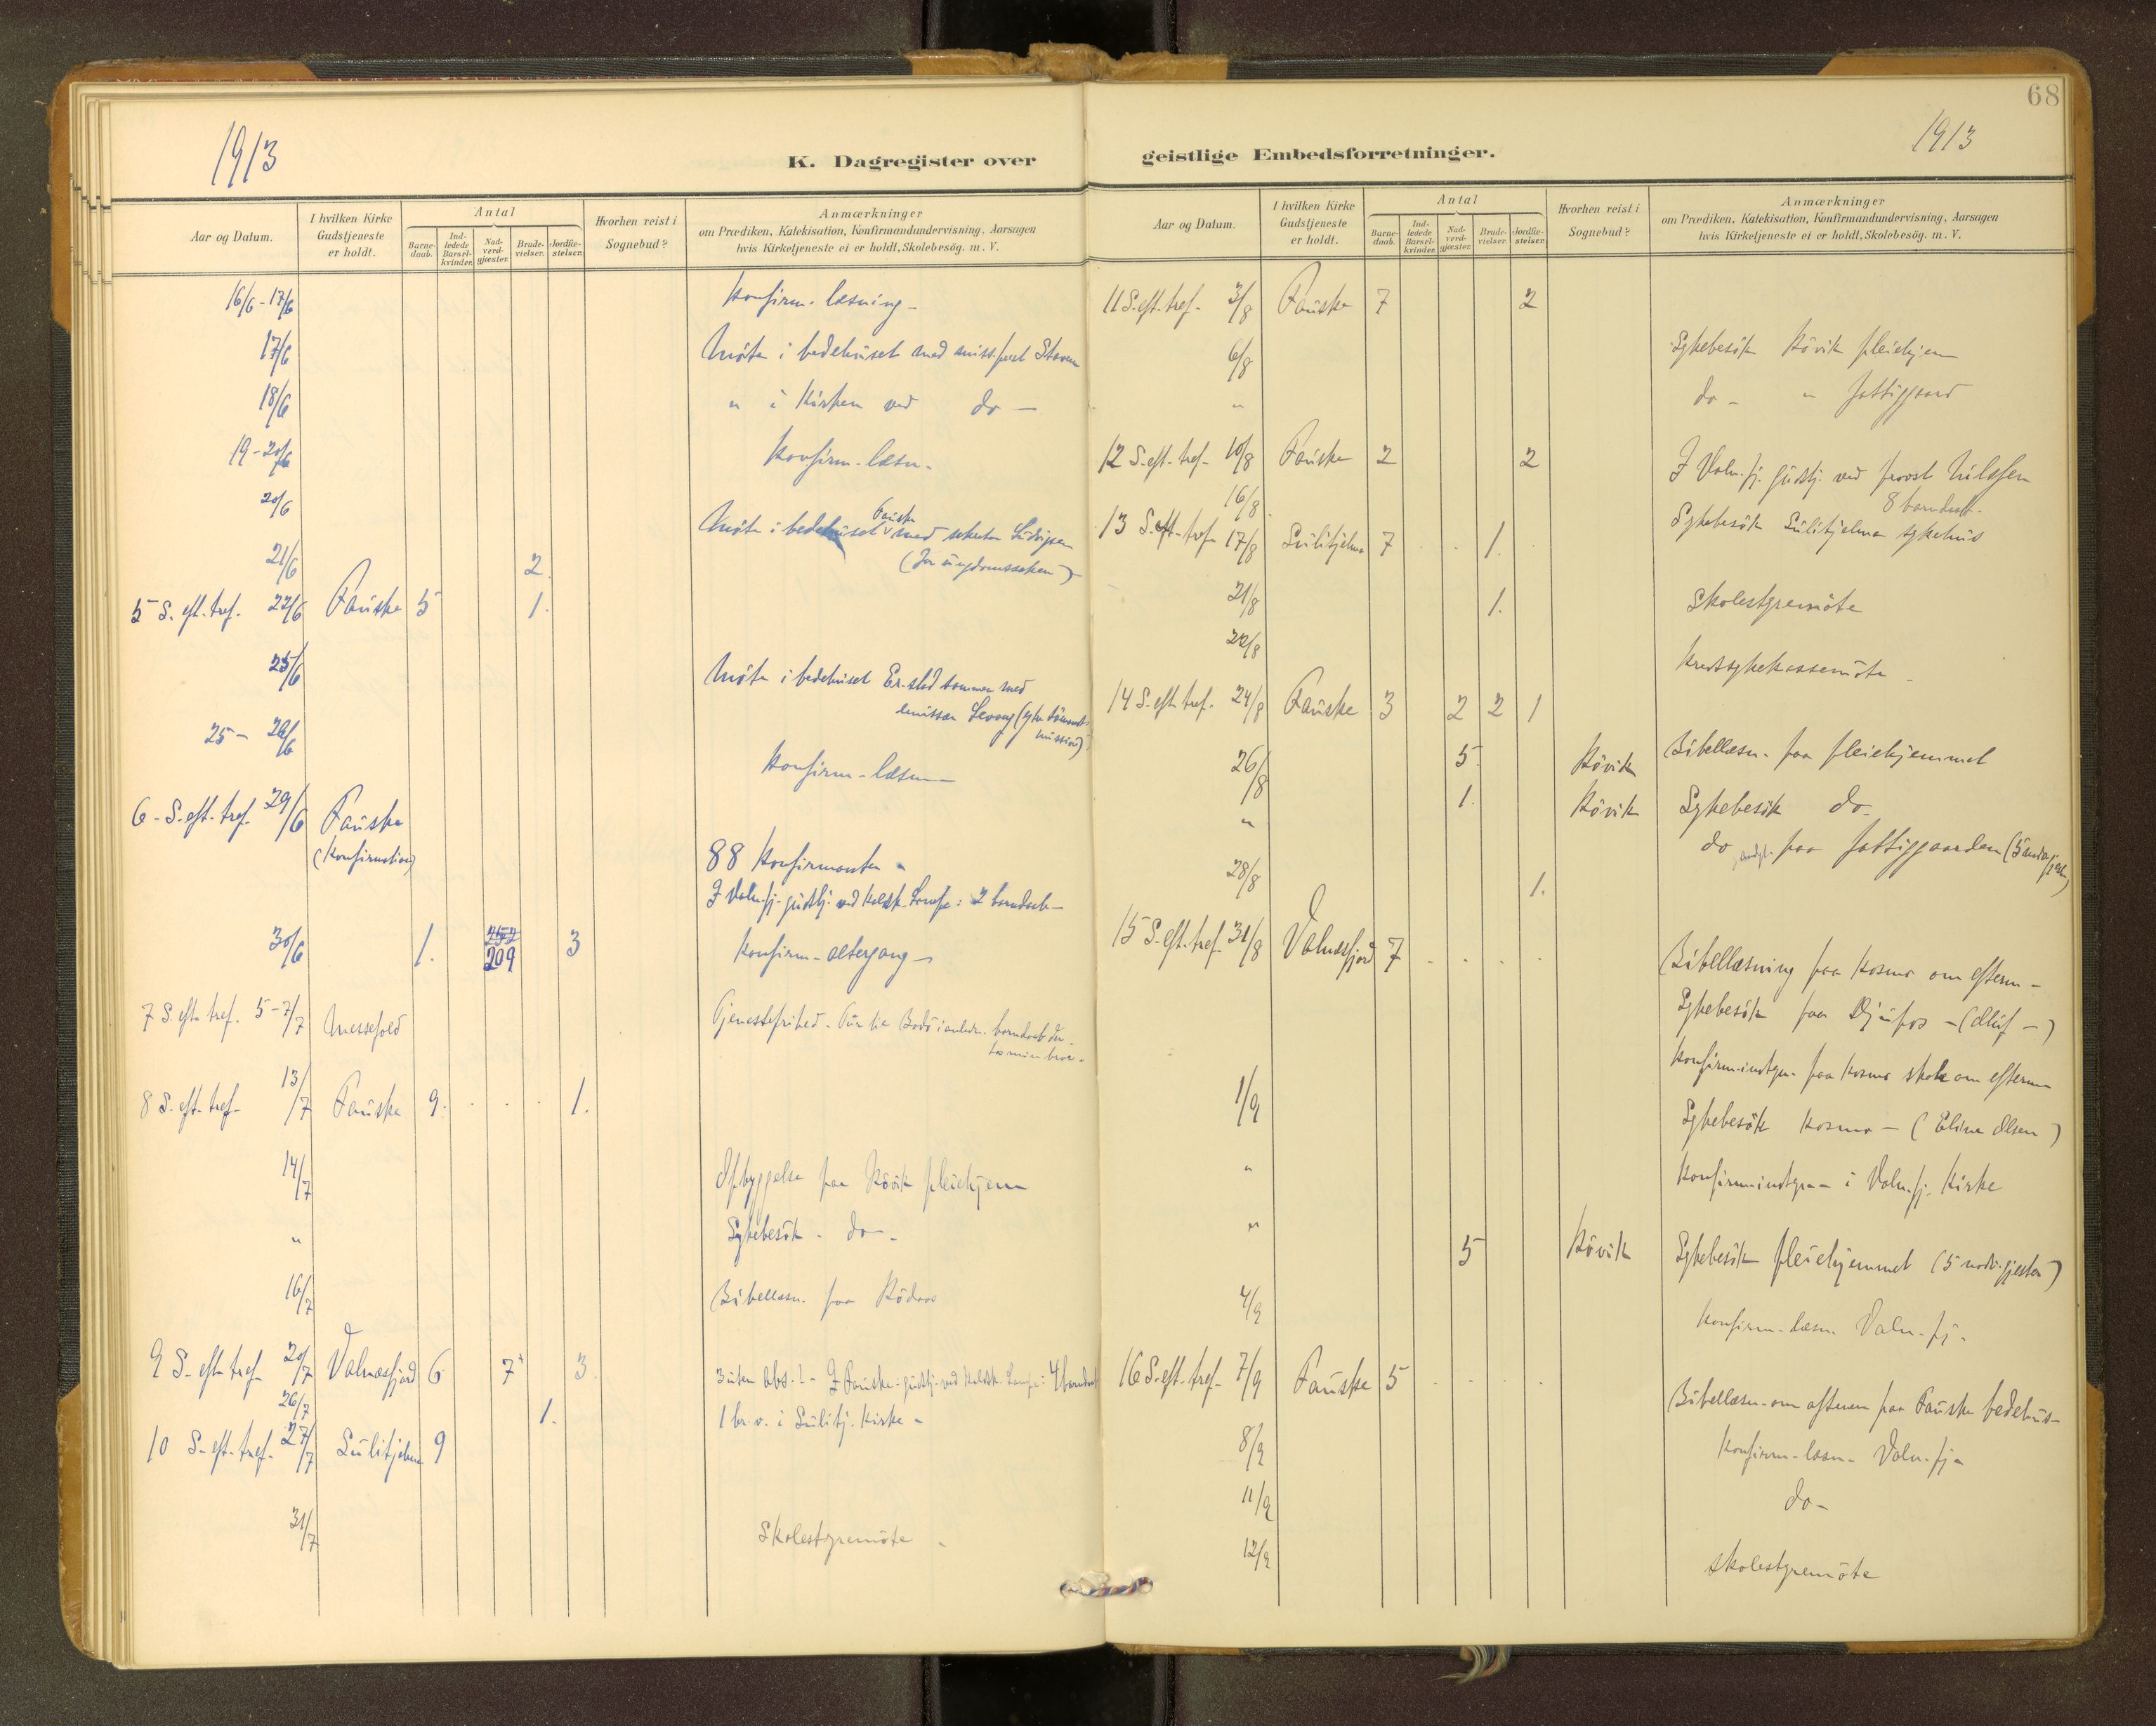 1913
K. Dagregister over
Aar og Datum.
I hvilken Kirke
Gudstjeneste
er holdt.
Antal
Barne-
daab.
Ind-
ledede
Barsel-
kvinder.
Nad-
verd-
gjæster.
Brude-
vielser.
Jordfæ-
stelser.
Hvorhen reist i
Sognebud?
Anmærkninger
om Prædiken, Katekisation, Konfirmandundervisning, Aarsagen
hvis Kirketjeneste ei er holdt, Skolebesøg. m. V.
16/6 - 17/6 Konfirm. læsning -
17/6 Møte i bedehuset med
18/6 " i Kirken ved do -
19 - 20/6 Konfirm - læsn.
20/6 Møte i bedehuset Fauske med Ludvigsen
(for ungdomssaken)
21/6 2.
5 S. eft. tref. 22/6 Fauske 5 1.
25/6 Møte i bedehuset med
25 - 26/6 Konfirm - læsn -
6 - S. eft. tref. 29/6 Fauske
(Konfirmation) 88 Konfirmanter -
I Valn. fj. gudstj. ved 2 barnedaab -
30/6 1. 252 209 3 Konfirm - altergang -
7 S. eft. tref. 5 - 7/7 Messefald Tjenestefrihed -
8 S. eft. tref. 13/7 Fauske 9. . . . 1.
14/7 Opbyggelse paa Røvik pleiehjem
" Sykebesøk - do -
16/7 Bibellæsn. paa
9 S. eft. tref. 20/7 Valnæsfjord 6 7 3 3 uten abs. ! - I Fauske: gudstj. ved 4 barnedaab
26/7 1. 1 br. v. i Sulitj. Kirke -
10 S. eft. tref. 27/7 Sulitjelma 9
31/7 Skolestyremøte -
68
1913
geistlige Embedsforretninger.
Aar og Datum.
I hvilken Kirke
Gudstjeneste
er holdt.
Antal
Barne-
daab.
Ind-
ledede
Barsel-
kvinder.
Nad-
verd-
gjæster.
Brude-
vielser.
Jordfæ-
stelser.
Hvorhen reist i
Sognebud?
Anmærkninger
om Prædiken, Katekisation, Konfirmandundervisning, Aarsagen
hvis Kirketjeneste ei er holdt, Skolebesøg. m. V.
11 S. eft. tref. 3/8 Fauske 7 2
6/8 Sykebesøk Røvik pleiehjem
" do - " fattiggaard
12 S. eft. tref. 10/8 Fauske 2 2 I Valn. fj. gudstj. ved provst Nilssen
8 barnedaab.
16/8 Sykebesøk Sulitjelma sykehus
13 S. eft. tref. 17/8 Sulitjelma 7 . . 1. .
21/8 1. Skolestyremøte
22/8 Kredssykekassemøte -
14 S. eft. tref. 24/8 Fauske 3 2 2 1
26/8 5. Røvik Bibellæsn. paa pleiehjemmet
1. Røvik Sykebesøk do -
" do paa fattiggaarden
28/8 1.
15 S. eft. tref. 31/8 Valnæsfjord 7 . . . . Bibellæsning paa Kosmo om efterm -
Sykebesøk paa
Konfirm. paa Kosmo skole om efterm -
1/9 Sykebesøk Kosmo - (Eline Olsen)
" Konfirm. i Valn. fj. Kirke
" 5 Røvik Sykebesøk pleiehjemmet (5 nadv. gjester)
4/9 Konfirm - læsn. Valn. fj -
16 S. eft. tref. 7/9 Fauske 5 . . . . Bibellæsn. om aftenen paa Fauske bedehus -
8/9 Konfirm - læsn - Valn. fj -
11/9 do -
12/9 skolestyremøte